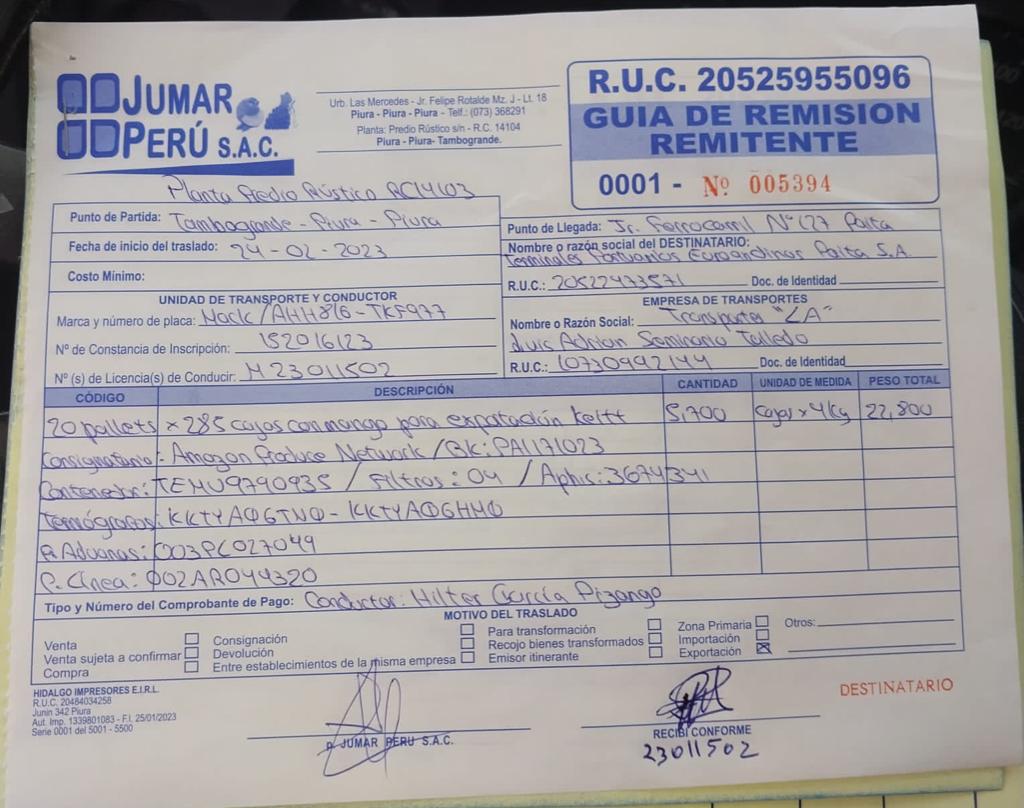 JUMAR
PERÚ S.A.C.
Urb. Las Mercedes - Jr. Felipe Rotalde Mz. J - Lt. 18
Piura - Piura - Piura - Telf.: (073) 368291
Planta: Predio Rústico s/n - R.C. 14104
Piura - Piura- Tambogrande.
R.U.C. 20525955096
GUIA DE REMISION
REMITENTE
0001 - Nº 005394
Planta Predio Rústico RC14103
Punto de Partida: Tambogrande - Piura - Piura
Fecha de inicio del traslado: 24-02-2023
Costo Mínimo:
Punto de Llegada: Jr. Ferrocarril Nº 127 Paita
Nombre o razón social del DESTINATARIO:
Terminales Portuarios Euroandinos Paita S.A.
R.U.C.: 20522473571 Doc. de Identidad
UNIDAD DE TRANSPORTE Y CONDUCTOR
Marca y número de placa: Mack / AHH816 - TKF977
Nº de Constancia de Inscripción: 152016123
Nº (s) de Licencia(s) de Conducir: M23011502
EMPRESA DE TRANSPORTES
Nombre o Razón Social: Transportes "LA"
Luis Adrian Seminario Talledo
R.U.C.: 10730992144 Doc. de Identidad
CÓDIGO DESCRIPCIÓN CANTIDAD UNIDAD DE MEDIDA PESO TOTAL
20 pallets x 285 cajas con mango para exportación Keitt 5,700 cajas x 4kg 22,800
Consignatario: Amazon Produce Network / BK: PAI171023
Contenedor: TEMU9790935 / Filtros: 04 / Aphis: 3674341
Termógrafos: KKTYA06TN0 - KKTYA06HM0
P. Aduanas: 003PC027049
P. Línea: 002AR044320
Tipo y Número del Comprobante de Pago: Conductor: Hilter García Pizango
MOTIVO DEL TRASLADO
Venta
Venta sujeta a confirmar
Compra
Consignación
Devolución
Entre establecimientos de la misma empresa
Para transformación
Recojo bienes transformados
Emisor itinerante
Zona Primaria
Importación
Exportación
Otros:
HIDALGO IMPRESORES E.I.R.L.
R.U.C. 20484034258
Junin 342 Piura
Aut. Imp. 1339801083 - F.I. 25/01/2023
Serie 0001 del 5001 - 5500
p. JUMAR PERU S.A.C.
RECIBI CONFORME
23011502
DESTINATARIO